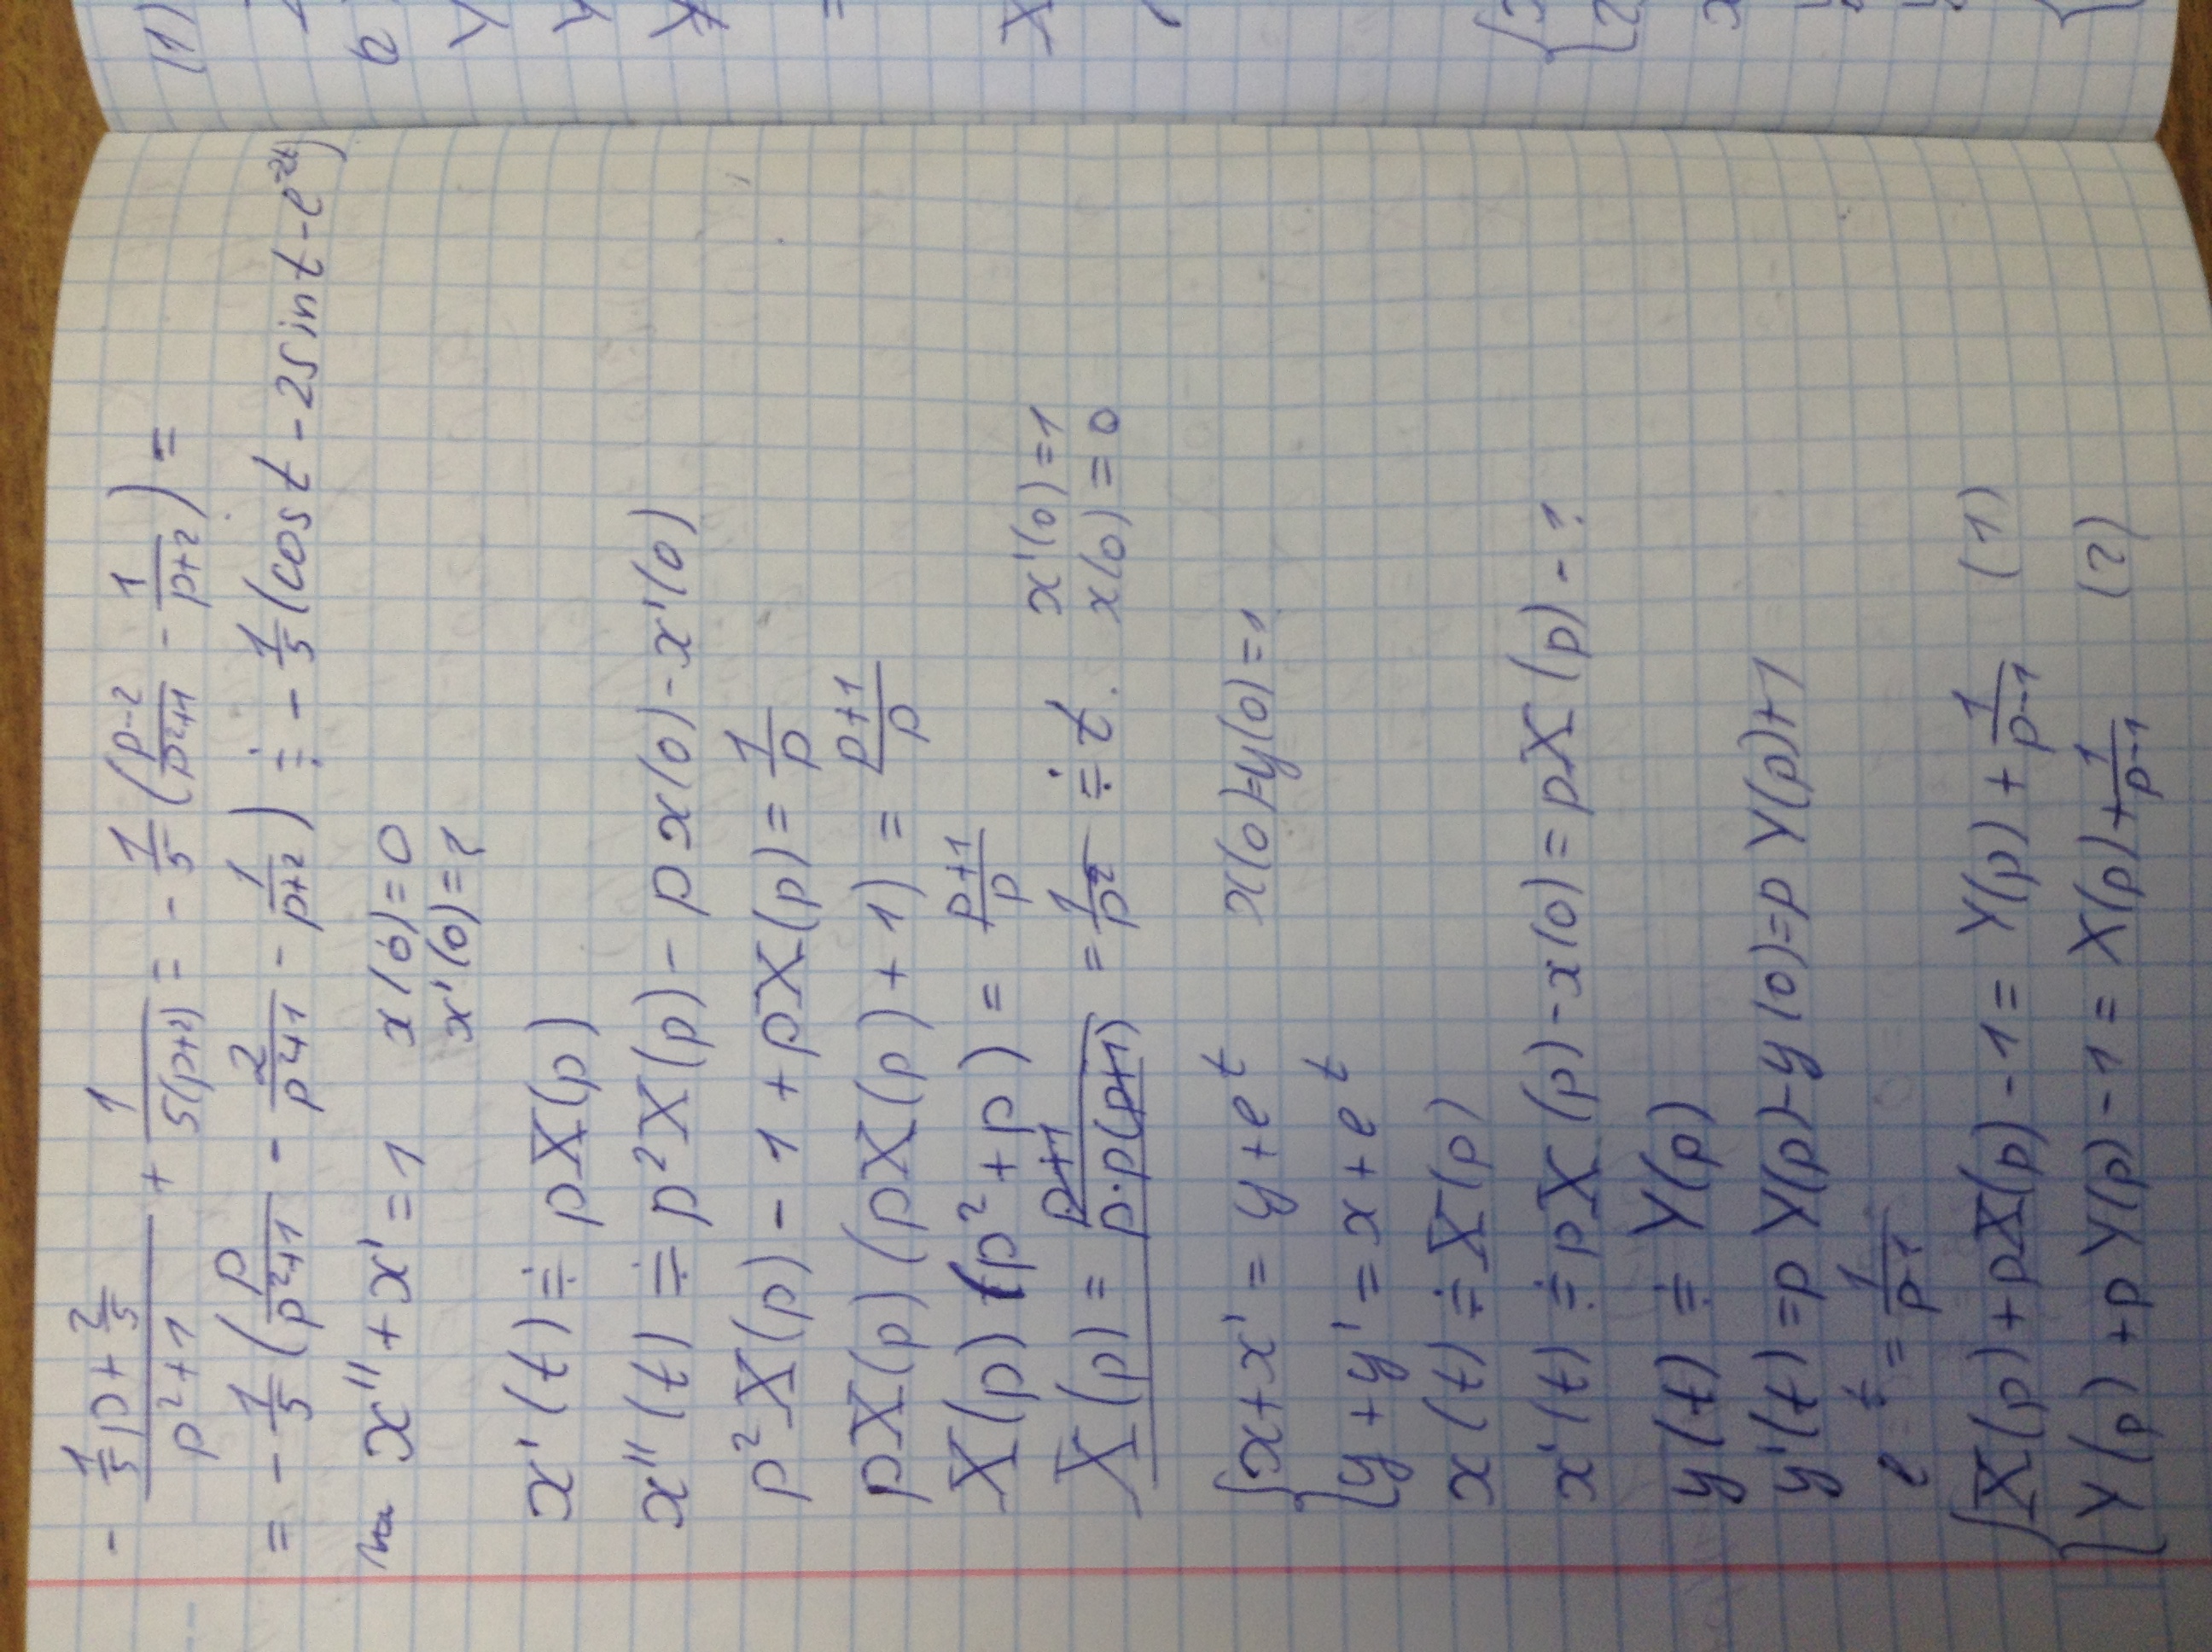 - (1/5 p + 2/5)/(p²+1) + 1/(5(p+2)) = - 1/5 ( (p-2)/(p²+1) - 1/(p+2) ) =
= - 1/5 ( p/(p²+1) - 2/(p²+1) - 1/(p+2) ) ÷ - 1/5 (cos t - 2 sin t - e^(-2t))
x'' + x' = 1 x(0) = 0
x'(0) = 1
x'(t) ÷ pX(p)
x''(t) ÷ p²X(p) - p x(0) - x'(0)
p²X(p) - 1 + pX(p) = 1/p
pX(p) (pX(p) + 1) = (p+1)/p
X(p) (p² + p) = (p+1)/p
x'(0) = 1
X(p) = (p+1)/(p·p(p+1)) = 1/p² ÷ t. x(0) = 0
{ x + x' = y + e^t x(0) = y(0) = 1
{ y + y' = x + e^t
x(t) ÷ X(p)
x'(t) ÷ pX(p) - x(0) = pX(p) - 1
y(t) ÷ Y(p)
y'(t) = pY(p) - y(0) = pY(p) + 1
e^t = 1/(p-1)
{ X(p) + pX(p) - 1 = Y(p) + 1/(p-1) (1)
{ Y(p) + pY(p) - 1 = X(p) + 1/(p-1) (2)
(1)